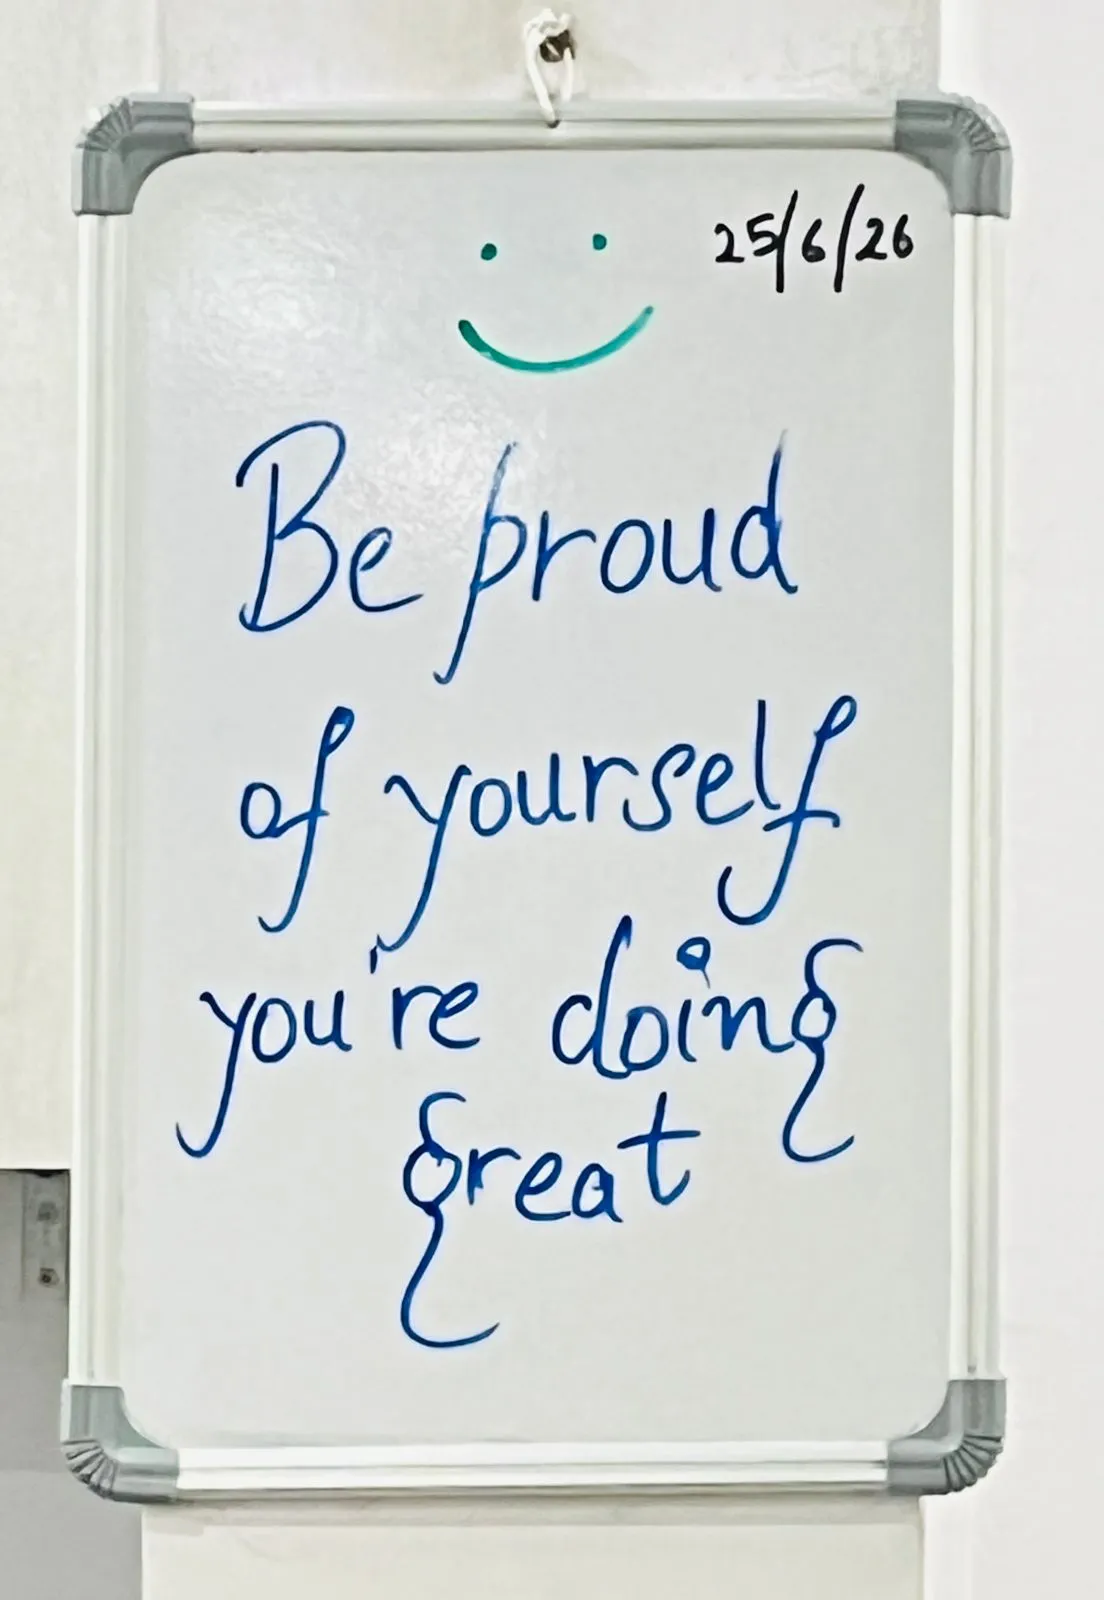 25/6/26
Be proud
of yourself
you're doing
great